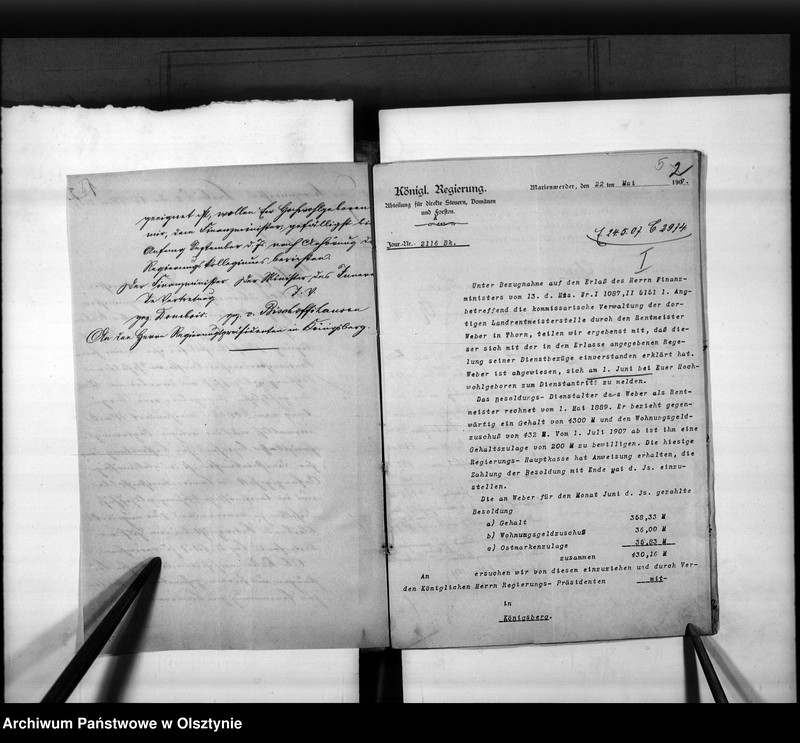 geeignet ist, wollen Ew Hochwohlgeboren
mir, dem Finanzminister, gefälligst bis
Anfang September d. Js. nach Anhörung
Regierungskollegiums berichten.
Der Finanzminister Der Minister des Innern
In Vertretung J. V.
gez. Dombois. gez. v. Bischoffshausen
An den Herrn Regierungspräsidenten in Königsberg.
5 2
Königl. Regierung.
Abteilung für direkte Steuern, Domänen
und Forsten.
A
Marienwerder, den 22 ten Mai 1907.
Jour.-Nr. 2116 Bk.
24.5.07 C 2974
I
Unter Bezugnahme auf den Erlaß des Herrn Finanz-
ministers vom 13. d. Mts. Nr.I 1087,II 5151 1. Ang-
betreffend die kommissarische Verwaltung der dor-
tigen Landrentmeisterstelle durch den Rentmeister
Weber in Thorn, teilen wir ergebenst mit, daß die-
ser sich mit der in den Erlasse angegebenen Rege-
lung seiner Dienstbezüge einverstanden erklärt hat.
Weber ist abgewiesen, sich am 1. Juni bei Euer Hoch-
wohlgeboren zum Dienstantritt zu melden.
Das Besoldungs- Dienstalter des Weber als Rent-
meister rechnet vom 1. Mai 1889. Er bezieht gegen-
wärtig ein Gehalt von 4300 M und den Wohnungsgeld-
zuschuß von 432 M. Vom 1. Juli 1907 ab ist ihm eine
Gehaltszulage von 200 M zu bewilligen. Die hiesige
Regierungs- Hauptkasse hat Anweisung erhalten, die
Zahlung der Besoldung mit Ende Mai d. Js. einzu-
stellen.
Die an Weber für den Monat Juni d. Js. gezahlte
Besoldung
a) Gehalt 358,33 M
b) Wohnungsgeldzuschuß 36,00 M
c) Ostmarkenzulage 35,83 M
zusammen 430,16 M
An ersuchen wir von diesen einzuziehen und durch Ver-
den Königlichen Herrn Regierungs- Präsidenten mit-
in
Königsberg.
Archiwum Państwowe w Olsztynie